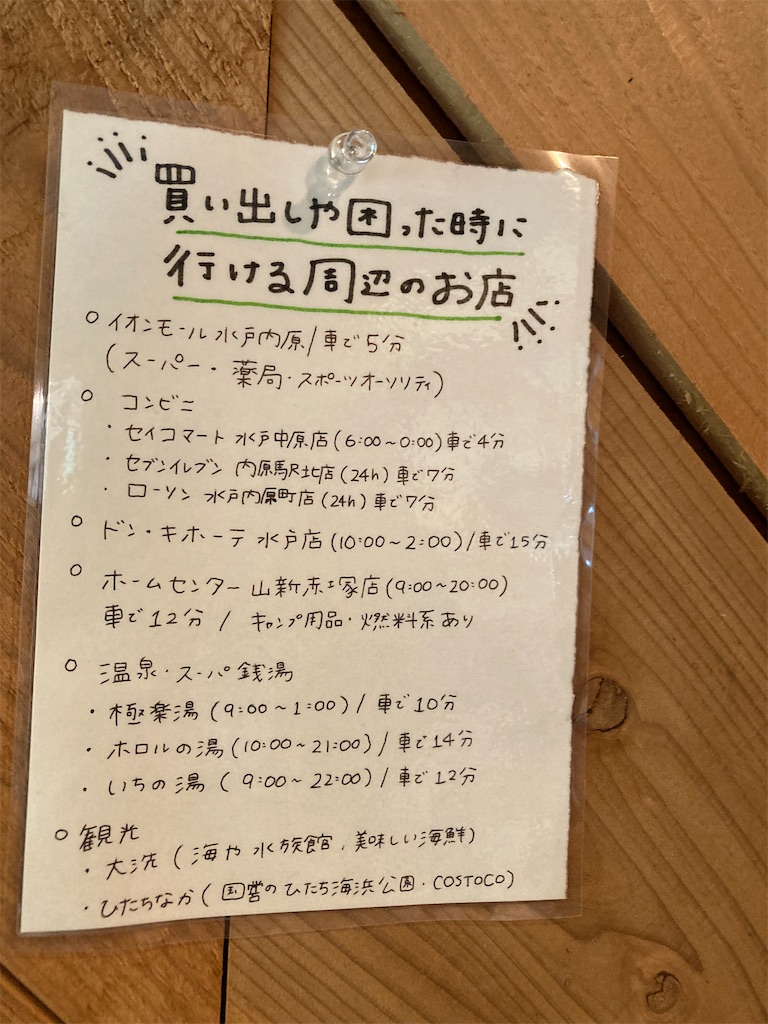 買い出しや困った時に
行ける周辺のお店
○ イオンモール水戸内原/車で5分
(スーパー・薬局・スポーツオーソリティ)
○ コンビニ
・セイコマート 水戸中原店(6:00~0:00)車で4分
・セブンイレブン 内原駅北店(24h)車で7分
・ローソン 水戸内原町店(24h)車で7分
○ ドン・キホーテ 水戸店(10:00~2:00)/車で15分
○ ホームセンター 山新赤塚店(9:00~20:00)
車で12分 / キャンプ用品・燃料系あり
○ 温泉・スーパ銭湯
・極楽湯(9:00~1:00)/車で10分
・ホロルの湯(10:00~21:00)/車で14分
・いちの湯(9:00~22:00)/車で12分
○ 観光
・大洗(海や水族館、美味しい海鮮)
・ひたちなか(国営のひたち海浜公園・COSTOCO)